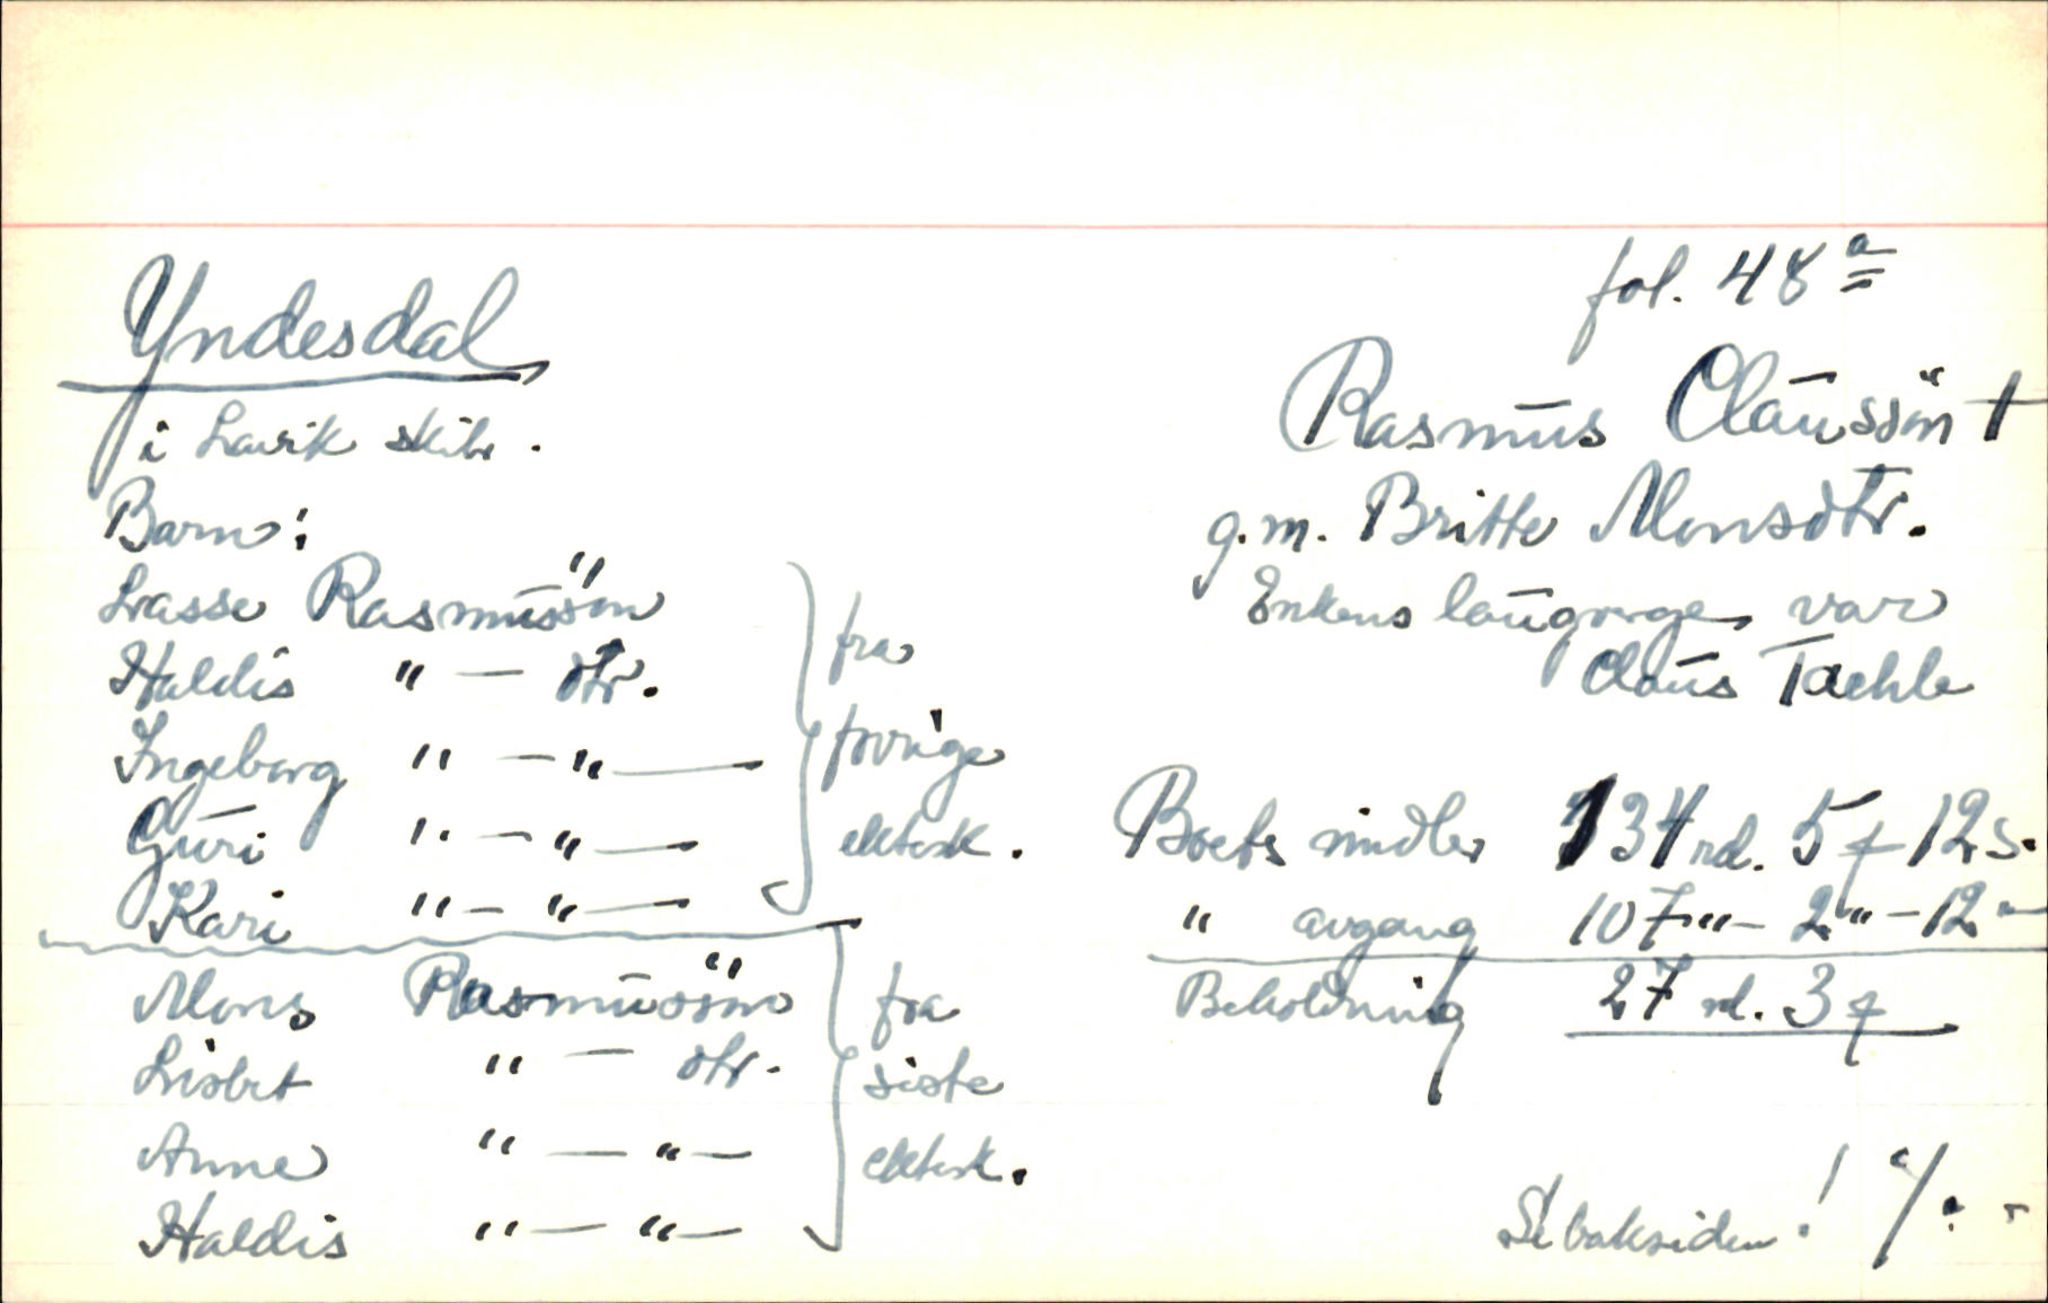 fol. 48 a
Yndesdal
i Lavik skibr.
Rasmus Claussön †
g.m. Britte Monsdtr.
Enkens laugverge var
Claus Tæhle
Barn:
Lasse Rasmussön
Haldis " — dtr.
Ingeborg " — " —
Guri " — " —
Kari " — " —
fra
forrige
ektesk.
Mons Rasmussön
Lisbet " — dtr.
Anne " — " —
Haldis " — " —
fra
siste
ektesk.
Boets midler 134 rd. 5 ƒ 12 s.
" avgang 107 " — 2 " — 12 "
Beholdning 27 rd. 3 ƒ
Se baksiden! ·/.